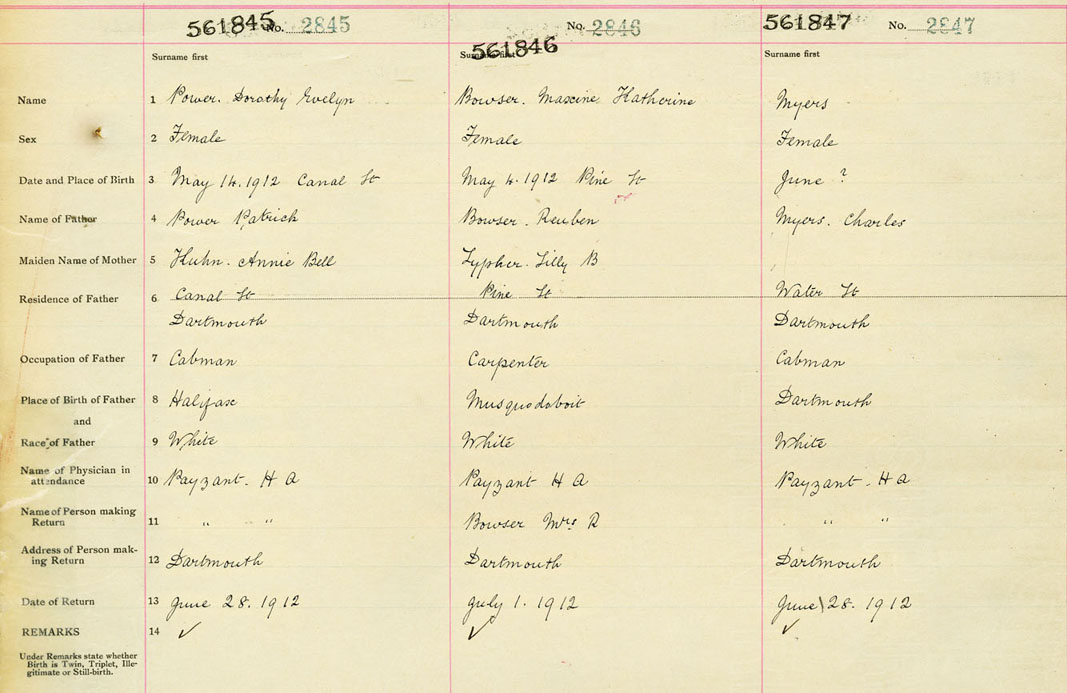 561845 No. 2845 No. 2846 561847 No. 2847
561846
Surname first Surname first Surname first
Name 1 Power. Dorothy Evelyn Bowser. Maxine Katherine Myers
Sex 2 Female Female Female
Date and Place of Birth 3 May 14. 1912 Canal St May 4. 1912 Pine St June ?
Name of Father 4 Power Patrick Bowser. Reuben Myers. Charles
Maiden Name of Mother 5 Huhn. Annie Bell Zypher. Lilly B
Residence of Father 6 Canal St Pine St Water St
Dartmouth Dartmouth Dartmouth
Occupation of Father 7 Cabman Carpenter Cabman
Place of Birth of Father 8 Halifax Musquodoboit Dartmouth
and
Race of Father 9 White White White
Name of Physician in
attendance 10 Payzant. H A Payzant H A Payzant. H A
Name of Person making
Return 11 " " Bowser Mrs R " "
Address of Person mak-
ing Return 12 Dartmouth Dartmouth Dartmouth
Date of Return 13 June 28. 1912 July 1. 1912 June 28. 1912
REMARKS 14 ✓ ✓ ✓
Under Remarks state whether
Birth is Twin, Triplet, Ille-
gitimate or Still-birth.